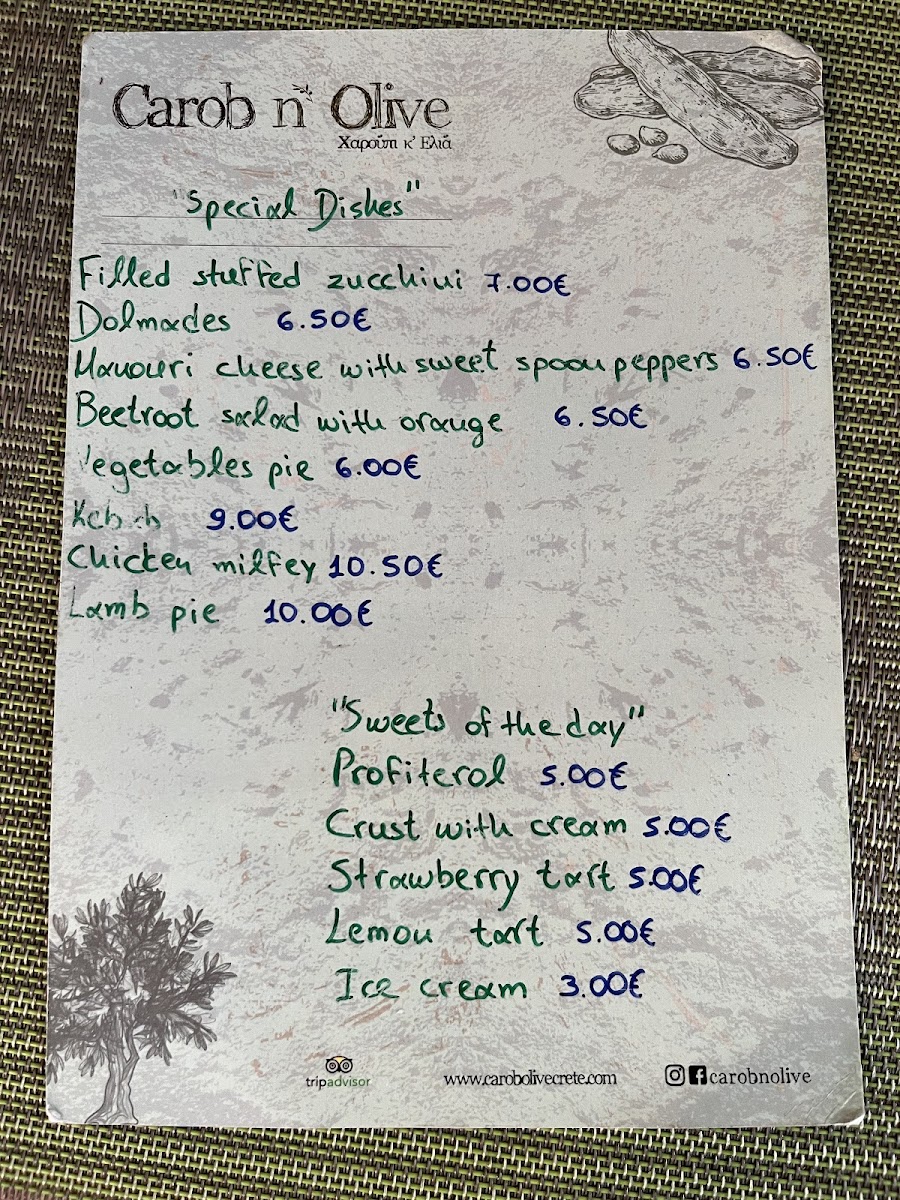 Carob n' Olive
Χαρούπι κ' Ελιά
"Special Dishes"
Filled stuffed zucchini 7.00€
Dolmades 6.50€
Manouri cheese with sweet spoon peppers 6.50€
Beetroot salad with orange 6.50€
Vegetables pie 6.00€
Kebab 9.00€
Chicken milfey 10.50€
Lamb pie 10.00€
"Sweets of the day"
Profiterol 5.00€
Crust with cream 5.00€
Strawberry tart 5.00€
Lemon tart 5.00€
Ice cream 3.00€
tripadvisor
www.carobolivecrete.com
carobnolive